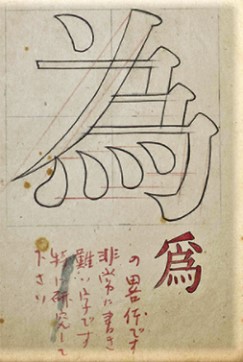 為
爲
の畧体です
非常に書き
難い字です
特に研究して
下さい